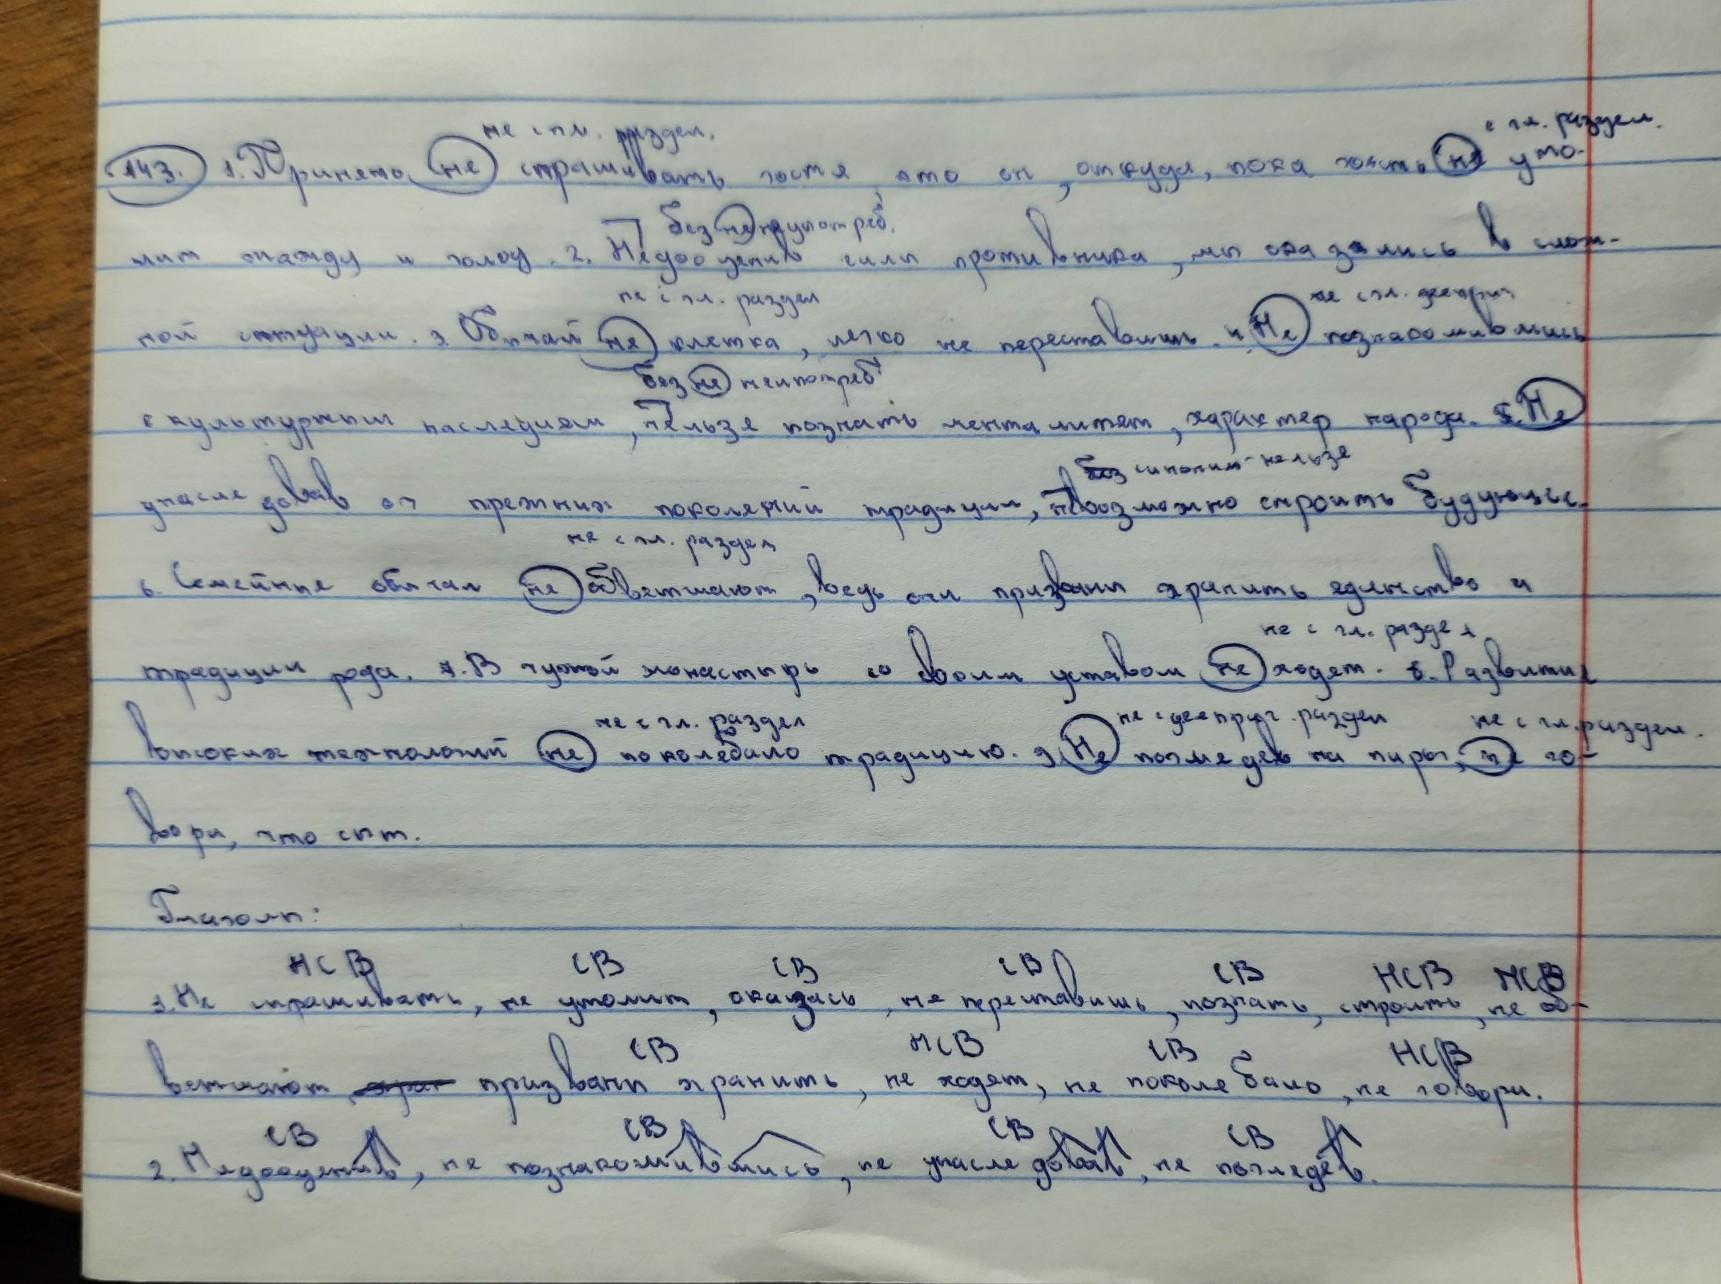 не с гл. раздел. с гл. раздел.
143. 1. Принято не спрашивать гостя, кто он, откуда, пока хозяин не уто-
без не неупотреб.
мит жажду и голод. 2. Недооценив силы противника, мы оказались в слож-
не с гл. раздел не с гл. дееприч
ной ситуации. 3. Обычай не клетка, легко не переставишь. 4. Не познакомившись
без не неупотреб
с культурным наследием, нельзя познать менталитет, характер народа. 5. Не
синоним - нельзя
унаследовав от прежних поколений традиции, невозможно строить будующее.
не с гл. раздел
6. Семейные обычаи не обветшают, ведь они призваны хранить единство и
не с гл. раздел
традиции рода. 7. В чужой монастырь со своим уставом не ходят. 8. Развитие
не с гл. раздел не с дееприч. раздел не с гл. раздел.
высоких технологий не поколебало традицию. 9. Не поглядев на пирог, не го-
вори, что сыт.
Глаголы:
НСВ СВ СВ СВ СВ НСВ НСВ
1. Не спрашивать, не утомит, оказась, не переставишь, познать, строить, не об-
СВ НСВ СВ НСВ
ветшают, призваны хранить, не ходят, не поколебало, не говори.
СВ СВ СВ СВ
2. Недооценив, не познакомившись, не унаследовав, не поглядев.